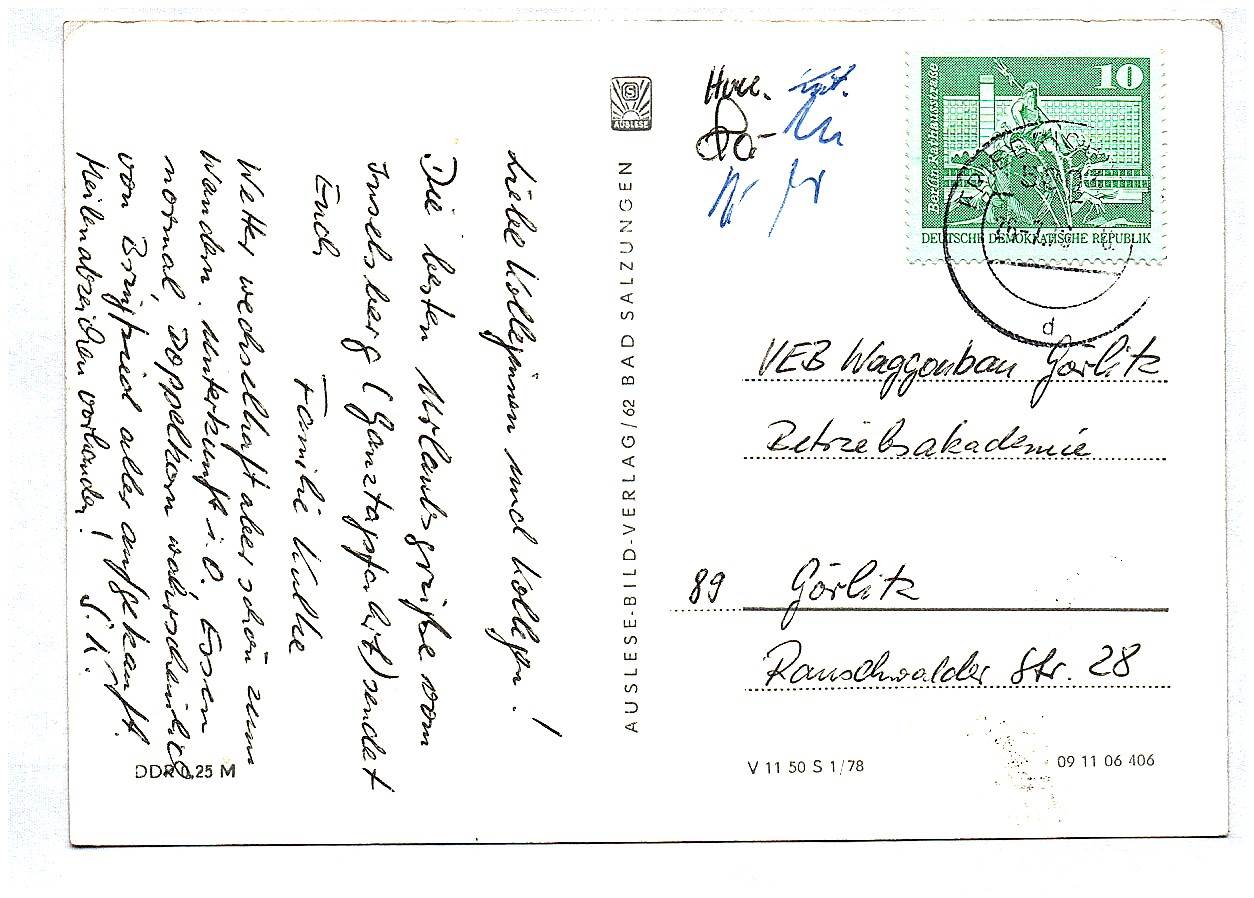 Liebe Kolleginnen und Kollegen!
Die besten Urlaubsgrüße vom
Inselsberg (Ganztagsfahrt) sendet
Euch
Familie Kulke
Wetter wechselhaft aber schön zum
Wandern. Unterkunft i.O. Essen
normal, Doppelkorn wahrscheinlich
von Brigfried alles aufgekauft.
Meilenabzeichen vorhanden!
S. K.
DDR 0,25 M
AUSLESE-BILD-VERLAG/62 BAD SALZUNGEN
AUSLESE
Berlin, Rathausstraße
10
DEUTSCHE DEMOKRATISCHE REPUBLIK
d
VEB Waggonbau Görlitz
Betriebsakademie
89 Görlitz
Rauschwalder Str. 28
V 11 50 S 1/78
09 11 06 406